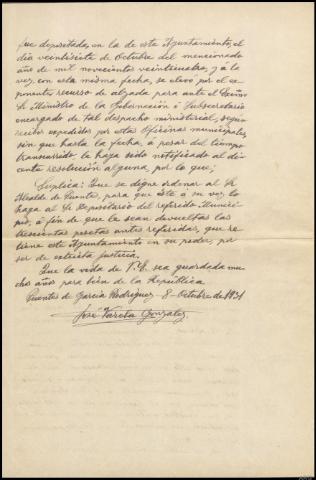 fue depositada, en la de este Ayuntamiento, el
dia veintisiete de Octubre del mencionado
año de mil novecientos veinticuatro, y á la
vez, con esta misma fecha, se elevo por el ex-
ponente recurso de alzada para ante el Exmo
Sr Ministro de la Gobernación ó Subsecretario
encargado de tal despacho ministerial, según
recibo expedidos por estas Oficinas municipales,
sin que hasta la fecha, á pesar del tiempo
transcurrido, le haya sido notificado al di-
cente resolución alguna, por lo que;
Suplica: Que se digne ordenar al Sr
Alcalde de Puentes, para que éste á su vez lo
haga al Sr Depositario del referido Munici-
pio, á fin de que le sean devueltas las
trescientas pesetas antes referidas, que re-
tiene este Ayuntamiento en su poder, por
ser de estricta justicia.
Que la vida de V.E. sea guardada mu-
chos años para bien de la República
Puentes de Garcia Rodriguez - 8 - Octubre de 1931
José Varela Gonzalez